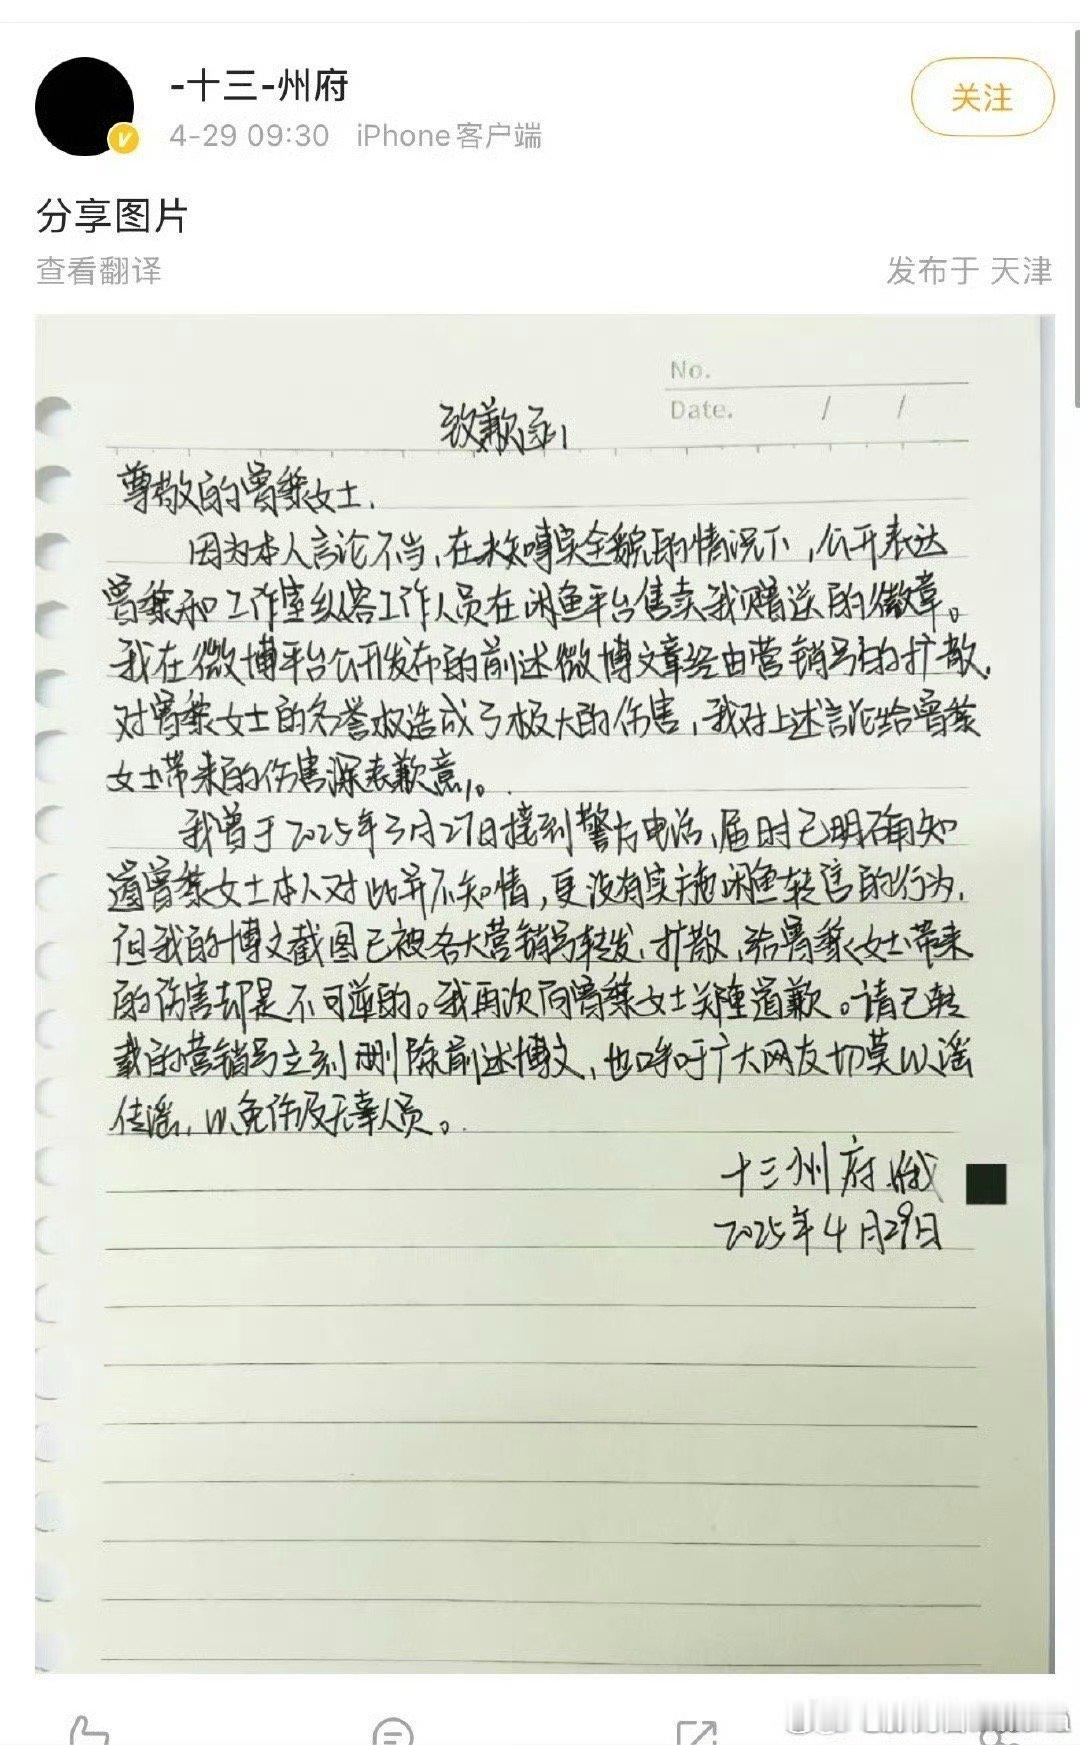 -十三-州府
关注
4-29 09:30 iPhone客户端
分享图片
查看翻译
发布于 天津
No.
Date. / /
致歉函
尊敬的曾黎女士.
因为本人言论不当,在未知事实全貌的情况下,公开表达
曾黎和工作室纵容工作人员在闲鱼平台售卖我赠送的徽章。
我在微博平台公开发布的前述微博文章经由营销号的扩散,
对曾黎女士的名誉权造成了极大的伤害,我对上述言论给曾黎
女士带来的伤害深表歉意。
我曾于2025年3月27日接到警方电话,届时已明确知
道曾黎女士本人对此并不知情,更没有实施闲鱼转售的行为,
但我的博文截图已被各大营销号转发、扩散,给曾黎女士带来
的伤害却是不可逆的。我再次向曾黎女士道歉。请已转
载的营销号立刻删除前述博文,也呼吁广大网友切莫以谣
传谣,以免伤及无辜人员。
十三州府
2025年4月29日